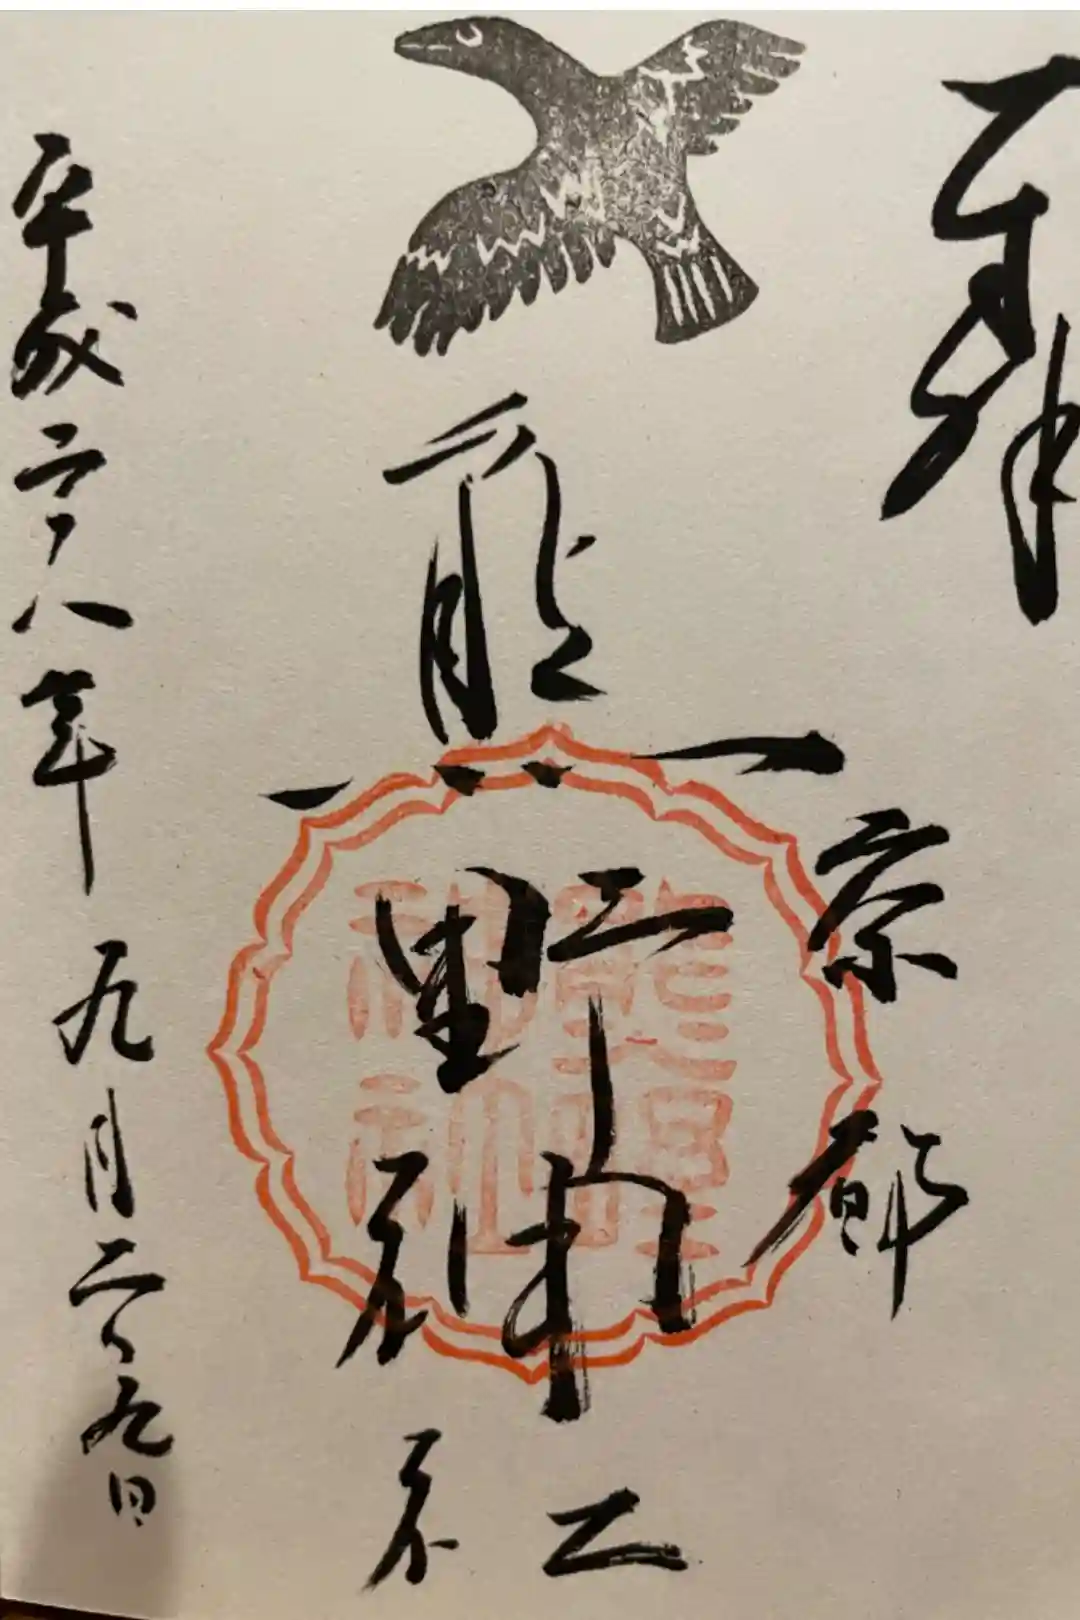 奉拝
京都
熊野神社
熊野
神社
平成二十八年九月二十九日